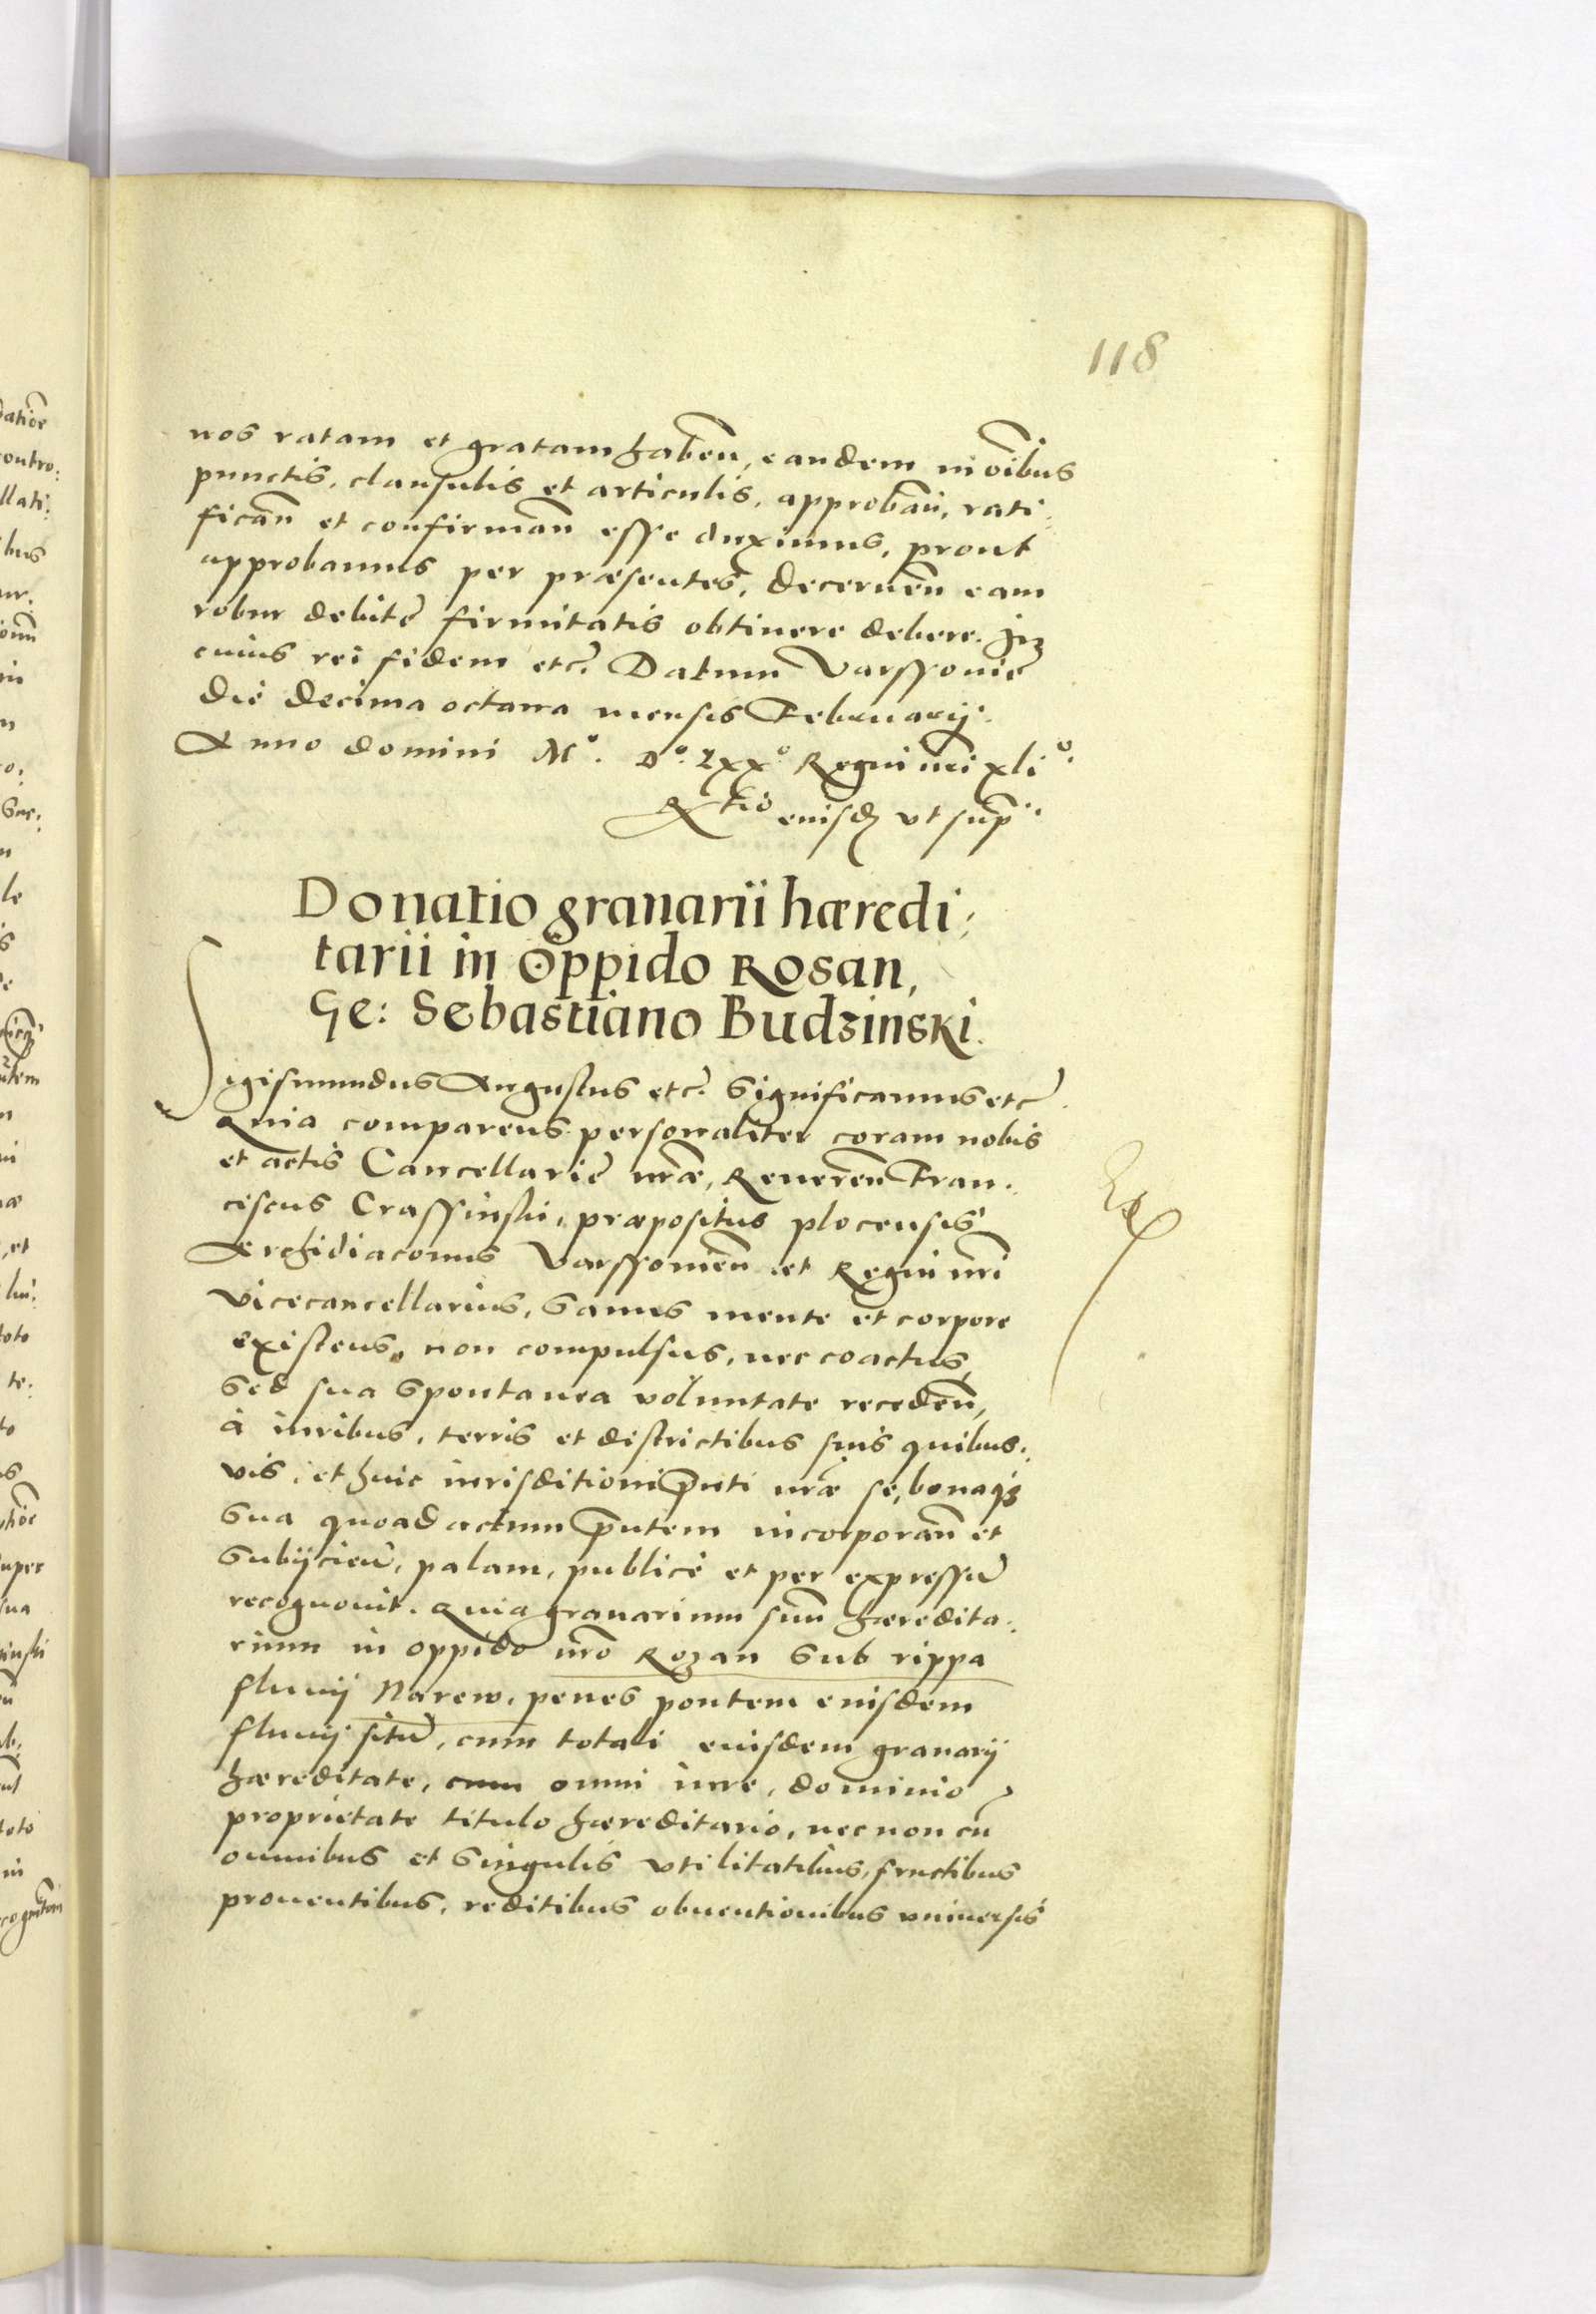 118
nos ratam et gratam haben̄, eandem in oībus
punctis, clausulis et articulis, approban̄, rati:
fican̄ et confirman̄ esse duximus, prout
approbamus per præsentes, decernen̄ eam
robur debitę firmitatis obtinere debere. In
cuius rei fidem etc. Datum Varssovię
die decima octava mensis Februarij.
Anno domini Mº. Dº. Lxxº Regni nr̄i xliº.
Rtio eiusd ut sup.
Donatio granarii hæredi:
tarii in oppido Rosan,
Ge: Sebastiano Budzinski.
Sigismundus Augustus etc. Significamus etc.
Quia comparens personaliter coram nobis
et actis Cancellarię nr̄æ, Reveren̄ Fran:
ciscus Crassinski, præpositus plocensis
Archidiaconus Varssovien̄ et Regni nr̄i
vicecancellarius, sanus mente et corpore
existens, non compulsus, nec coactus,
sed sua spontanea voluntate receden̄,
à iuribus, terris et districtibus suis quibus:
vis, et huic iurisditioni p̄nti nr̄æ se, bonaqȝ
sua quoad actum p̄ntem incorporan̄ et
subijcien̄, palam, publicè et per expressū
recognovit. Quia granarium suū hæredita:
rium in oppido nr̄o Rozan sub rippa
fluvij Narew, penes pontem eiusdem
fluvij sitū, cum totali eiusdem granarij
hæreditate, cum omni iure, dominio
proprietate titulo hæreditario, nec non cū
omnibus et singulis utilitatibus, fructibus
proventibus, reditibus obventionibus universis